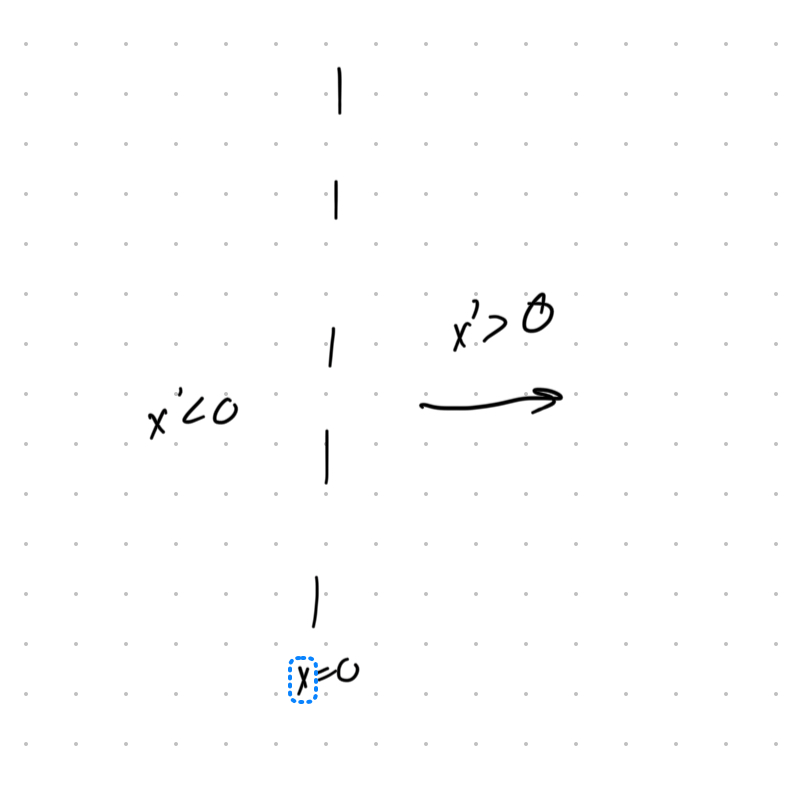 x'>0
x'<0
x=0